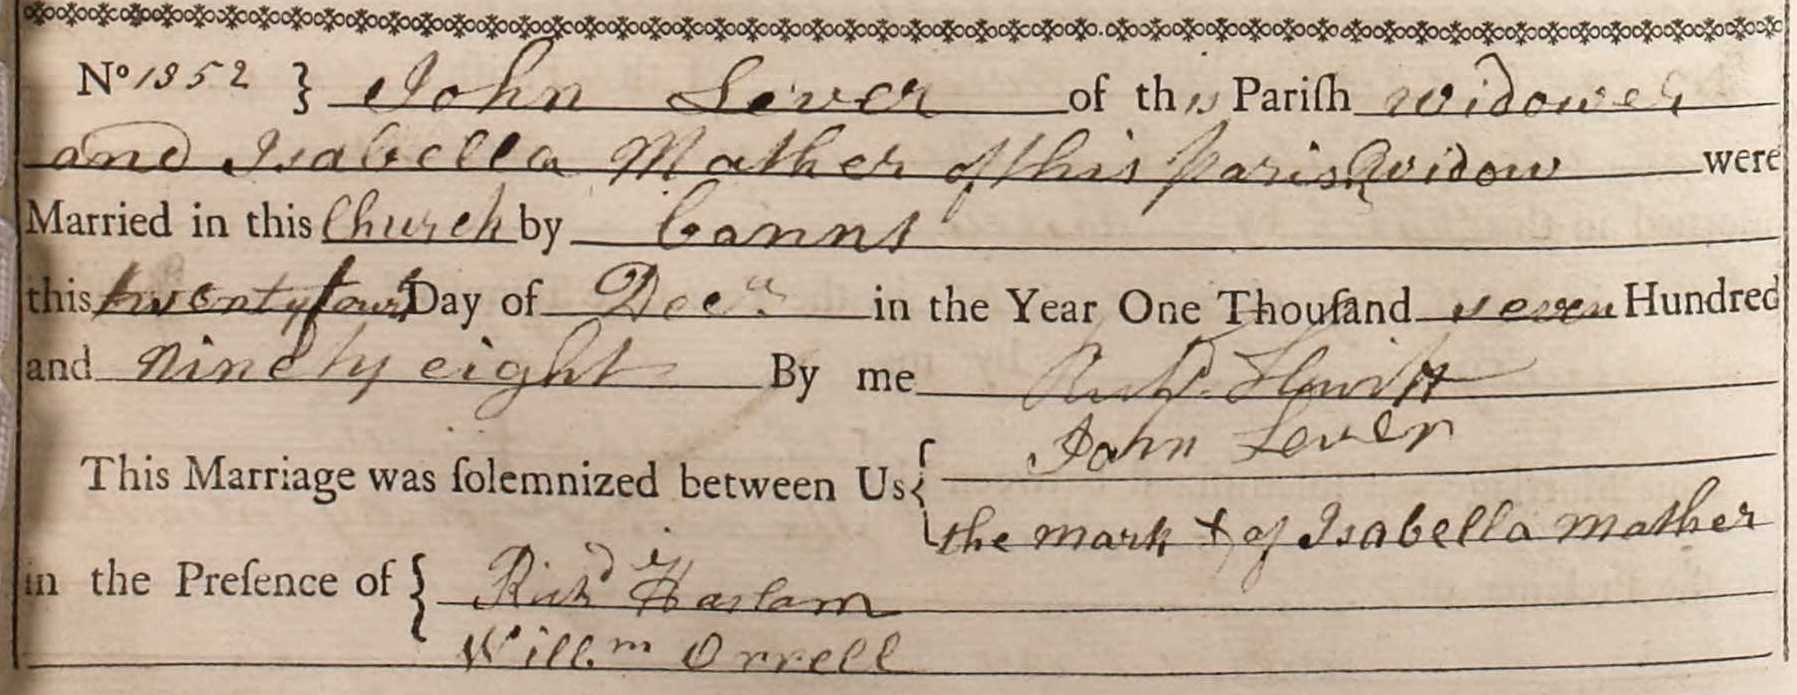 No 1352 } John Lever of this Pariſh widower
and Isabella Mather of this Parish widow were
Married in this Church by banns
this twenty fourth Day of Decr. in the Year One Thouſand seven Hundred
and ninety eight By me Richd. Hewitt
This Marriage was ſolemnized between Us { John Lever
the mark + of Isabella Mather
in the Preſence of { Richd Haslam
Willm Orrell